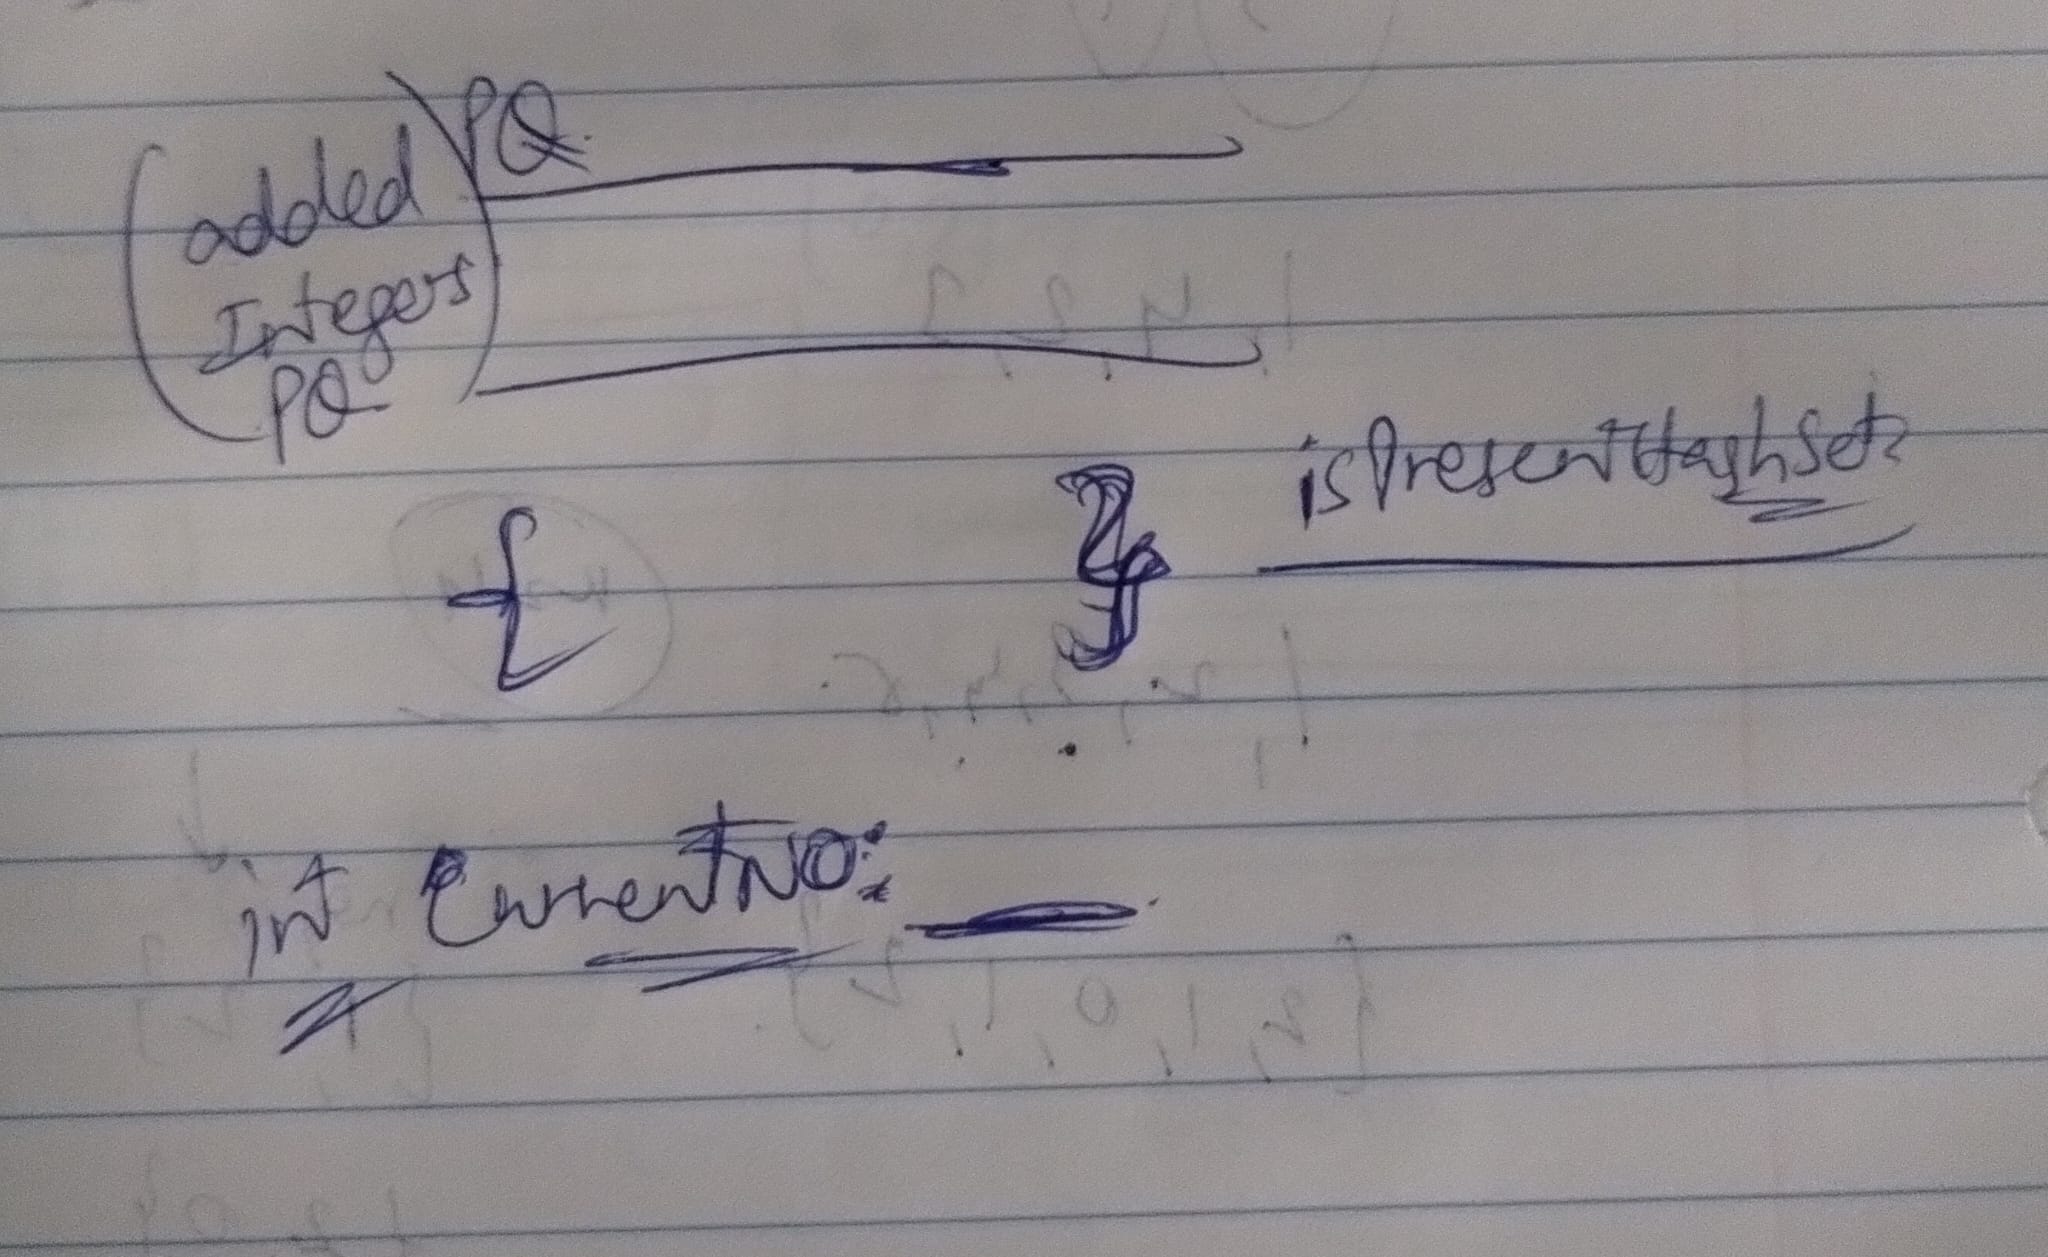 PQ
added
Integers
PQ
{ } isPresentHashSet
int CurrentNO: